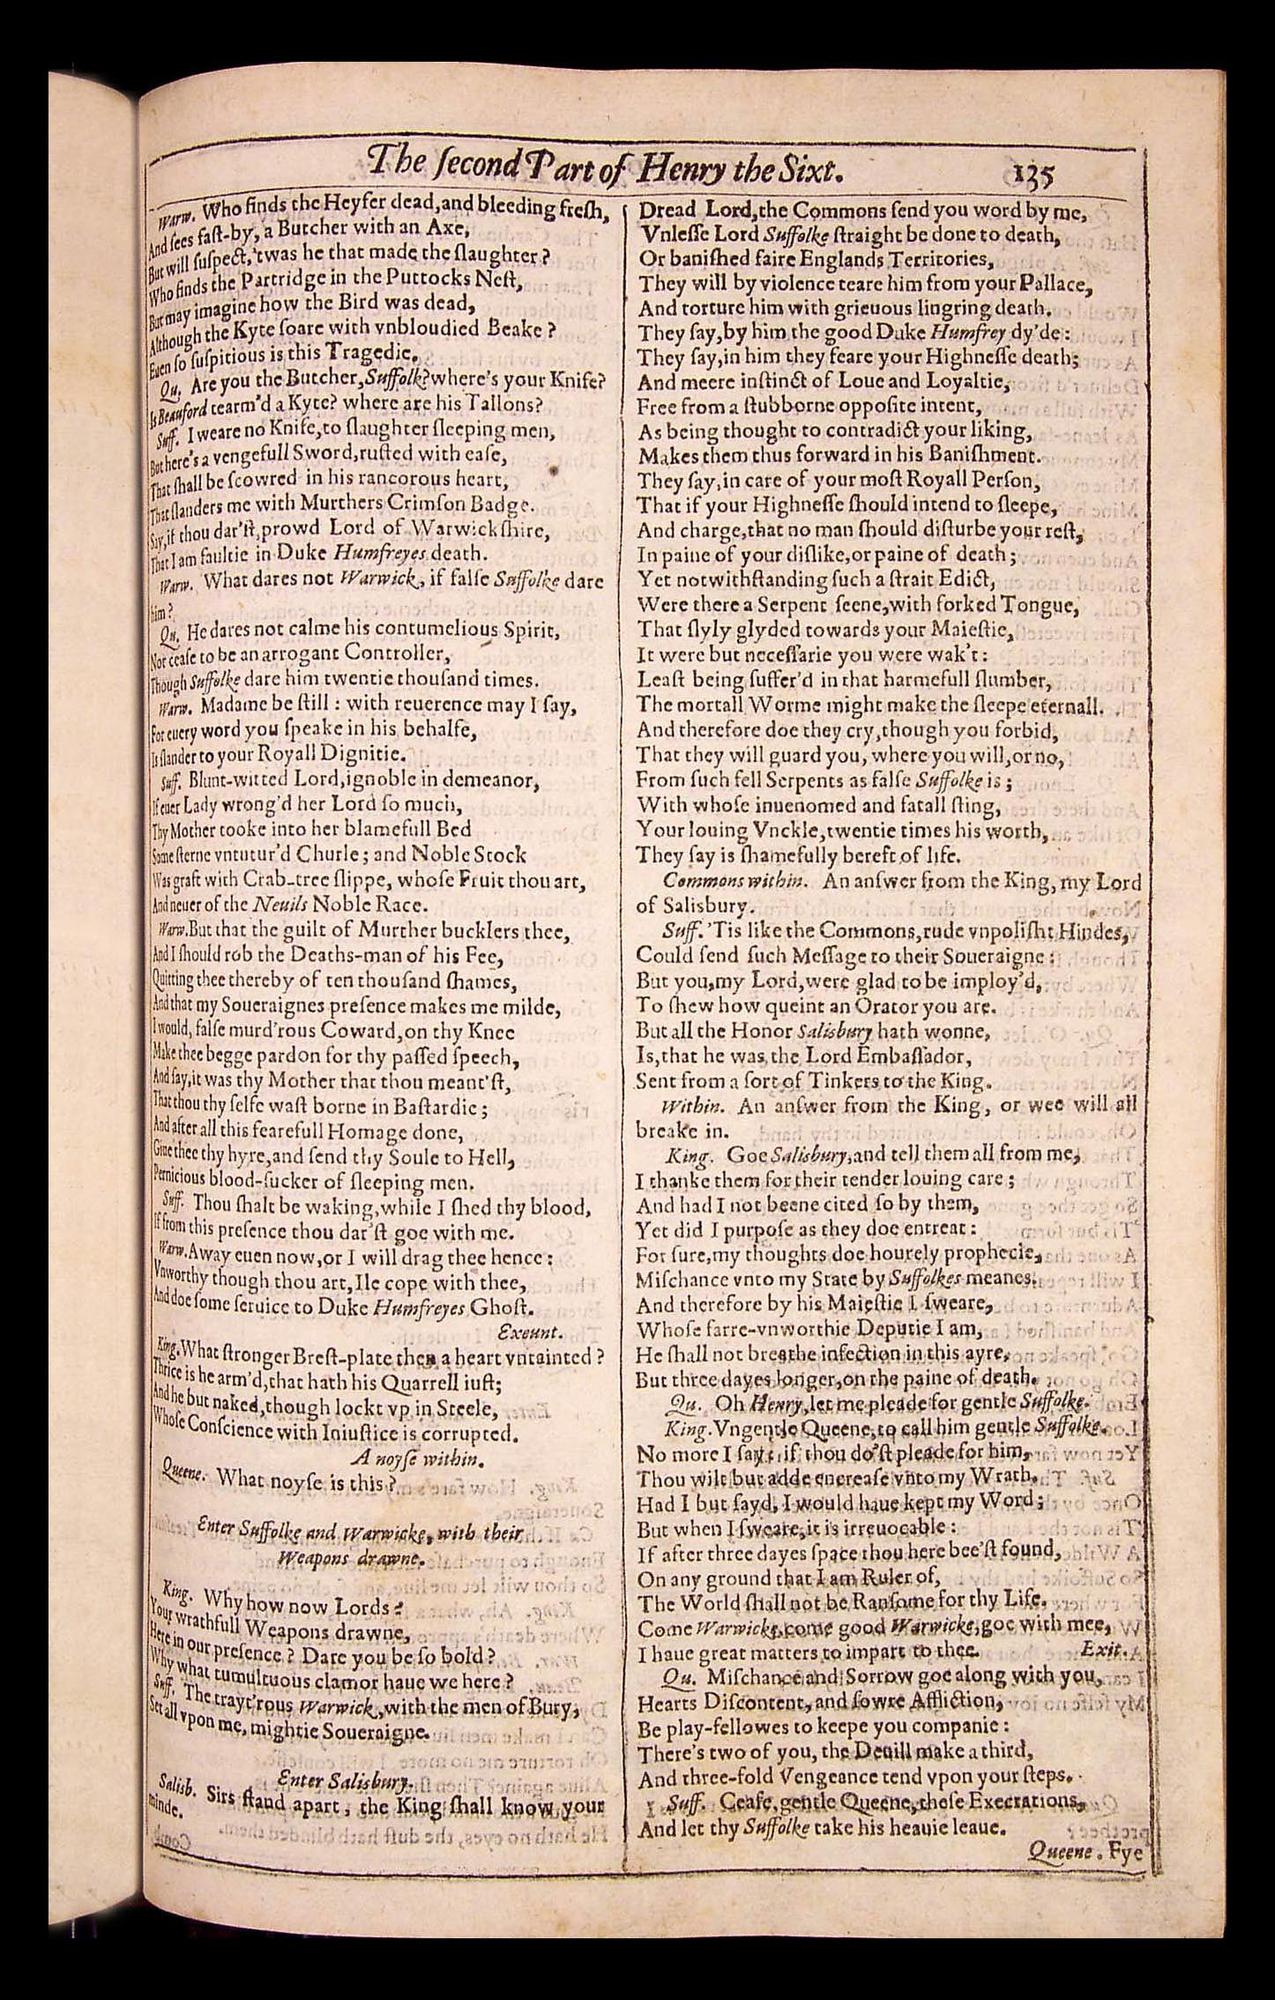 The ſecond Part of Henry the Sixt.
135
Warw. Who finds the Heyfer dead,and bleeding freſh,
And ſees faſt-by, a Butcher with an Axe,
But will ſuſpect,'twas he that made the ſlaughter?
Who finds the Partridge in the Puttocks Neſt,
But may imagine how the Bird was dead,
Although the Kyte ſoare with vnbloudied Beake?
Euen ſo ſuſpitious is this Tragedie.
Qu. Are you the Butcher,Suffolk?where's your Knife?
Is Beauford tearm'd a Kyte? where are his Tallons?
Suff. I weare no Knife,to ſlaughter ſleeping men,
But here's a vengefull Sword,ruſted with eaſe,
That ſhall be ſcowred in his rancorous heart,
That ſlanders me with Murthers Crimſon Badge.
Say,if thou dar'ſt,prowd Lord of Warwickſhire,
That I am faultie in Duke Humfreyes death.
Warw. What dares not Warwick, if falſe Suffolke dare
him?
Qu. He dares not calme his contumelious Spirit,
Nor ceaſe to be an arrogant Controller,
Though Suffolke dare him twentie thouſand times.
Warw. Madame be ſtill: with reuerence may I ſay,
For euery word you ſpeake in his behalfe,
Is ſlander to your Royall Dignitie.
Suff. Blunt-witted Lord,ignoble in demeanor,
If euer Lady wrong'd her Lord ſo much,
Thy Mother tooke into her blamefull Bed
Some ſterne vntutur'd Churle; and Noble Stock
Was graft with Crab-tree ſlippe, whoſe Fruit thou art,
And neuer of the Neuils Noble Race.
Warw.But that the guilt of Murther bucklers thee,
And I ſhould rob the Deaths-man of his Fee,
Quitting thee thereby of ten thouſand ſhames,
And that my Soueraignes preſence makes me milde,
I would, falſe murd'rous Coward,on thy Knee
Make thee begge pardon for thy paſſed ſpeech,
And ſay,it was thy Mother that thou meant'ſt,
That thou thy ſelfe waſt borne in Baſtardie;
And after all this fearefull Homage done,
Giue thee thy hyre,and ſend thy Soule to Hell,
Pernicious blood-ſucker of ſleeping men.
Suff. Thou ſhalt be waking,while I ſhed thy blood,
If from this preſence thou dar'ſt goe with me.
Warw.Away euen now,or I will drag thee hence:
Vnworthy though thou art,Ile cope with thee,
And doe ſome ſeruice to Duke Humfreyes Ghoſt.
Exeunt.
King.What ſtronger Breſt-plate then a heart vntainted?
Thrice is he arm'd,that hath his Quarrell iuſt;
And he but naked,though lockt vp in Steele,
Whoſe Conſcience with Iniuſtice is corrupted.
A noyſe within.
Queene. What noyſe is this?
Enter Suffolke and Warwicke, with their
Weapons drawne.
King. Why how now Lords?
Your wrathfull Weapons drawne,
Here in our preſence? Dare you be ſo bold?
Why what tumultuous clamor haue we here?
Suff. The trayt'rous Warwick,with the men of Bury,
Set all vpon me, mightie Soueraigne.
Enter Salisbury.
Salisb. Sirs ſtand apart, the King ſhall know your
minde.
Dread Lord,the Commons ſend you word by me,
Vnleſſe Lord Suffolke ſtraight be done to death,
Or baniſhed faire Englands Territories,
They will by violence teare him from your Pallace,
And torture him with grieuous lingring death.
They ſay,by him the good Duke Humfrey dy'de:
They ſay,in him they feare your Highneſſe death;
And meere inſtinct of Loue and Loyaltie,
Free from a ſtubborne oppoſite intent,
As being thought to contradict your liking,
Makes them thus forward in his Baniſhment.
They ſay,in care of your moſt Royall Perſon,
That if your Highneſſe ſhould intend to ſleepe,
And charge,that no man ſhould diſturbe your reſt,
In paine of your diſlike,or paine of death;
Yet notwithſtanding ſuch a ſtrait Edict,
Were there a Serpent ſeene,with forked Tongue,
That ſlyly glyded towards your Maieſtie,
It were but neceſſarie you were wak't:
Leaſt being ſuffer'd in that harmefull ſlumber,
The mortall Worme might make the ſleepe eternall.
And therefore doe they cry,though you forbid,
That they will guard you, where you will,or no,
From ſuch fell Serpents as falſe Suffolke is;
With whoſe inuenomed and fatall ſting,
Your louing Vnckle,twentie times his worth,
They ſay is ſhamefully bereft of life.
Commons within. An anſwer from the King, my Lord
of Salisbury.
Suff.'Tis like the Commons,rude vnpoliſht Hindes,
Could ſend ſuch Meſſage to their Soueraigne:
But you,my Lord,were glad to be imploy'd,
To ſhew how queint an Orator you are.
But all the Honor Salisbury hath wonne,
Is,that he was the Lord Embaſſador,
Sent from a ſort of Tinkers to the King.
Within. An anſwer from the King, or wee will all
breake in.
King. Goe Salisbury,and tell them all from me,
I thanke them for their tender louing care;
And had I not beene cited ſo by them,
Yet did I purpoſe as they doe entreat:
For ſure,my thoughts doe hourely prophecie,
Miſchance vnto my State by Suffolkes meanes.
And therefore by his Maieſtie I ſweare,
Whoſe farre-vnworthie Deputie I am,
He ſhall not breathe infection in this ayre,
But three dayes longer,on the paine of death.
Qu. Oh Henry,let me pleade for gentle Suffolke.
King.Vngentle Queene,to call him gentle Suffolke.
No more I ſay: if thou do'ſt pleade for him,
Thou wilt but adde encreaſe vnto my Wrath.
Had I but ſayd, I would haue kept my Word;
But when I ſweare,it is irreuocable:
If after three dayes ſpace thou here bee'ſt found,
On any ground that I am Ruler of,
The World ſhall not be Ranſome for thy Life.
Come Warwicke,come good Warwicke,goe with mee,
I haue great matters to impart to thee. Exit.
Qu. Miſchance and Sorrow goe along with you,
Hearts Diſcontent,and ſowre Affliction,
Be play-fellowes to keepe you companie:
There's two of you, the Deuill make a third,
And three-fold Vengeance tend vpon your ſteps.
Suff. Ceaſe,gentle Queene,theſe Execrations,
And let thy Suffolke take his heauie leaue.
Queene. Fye